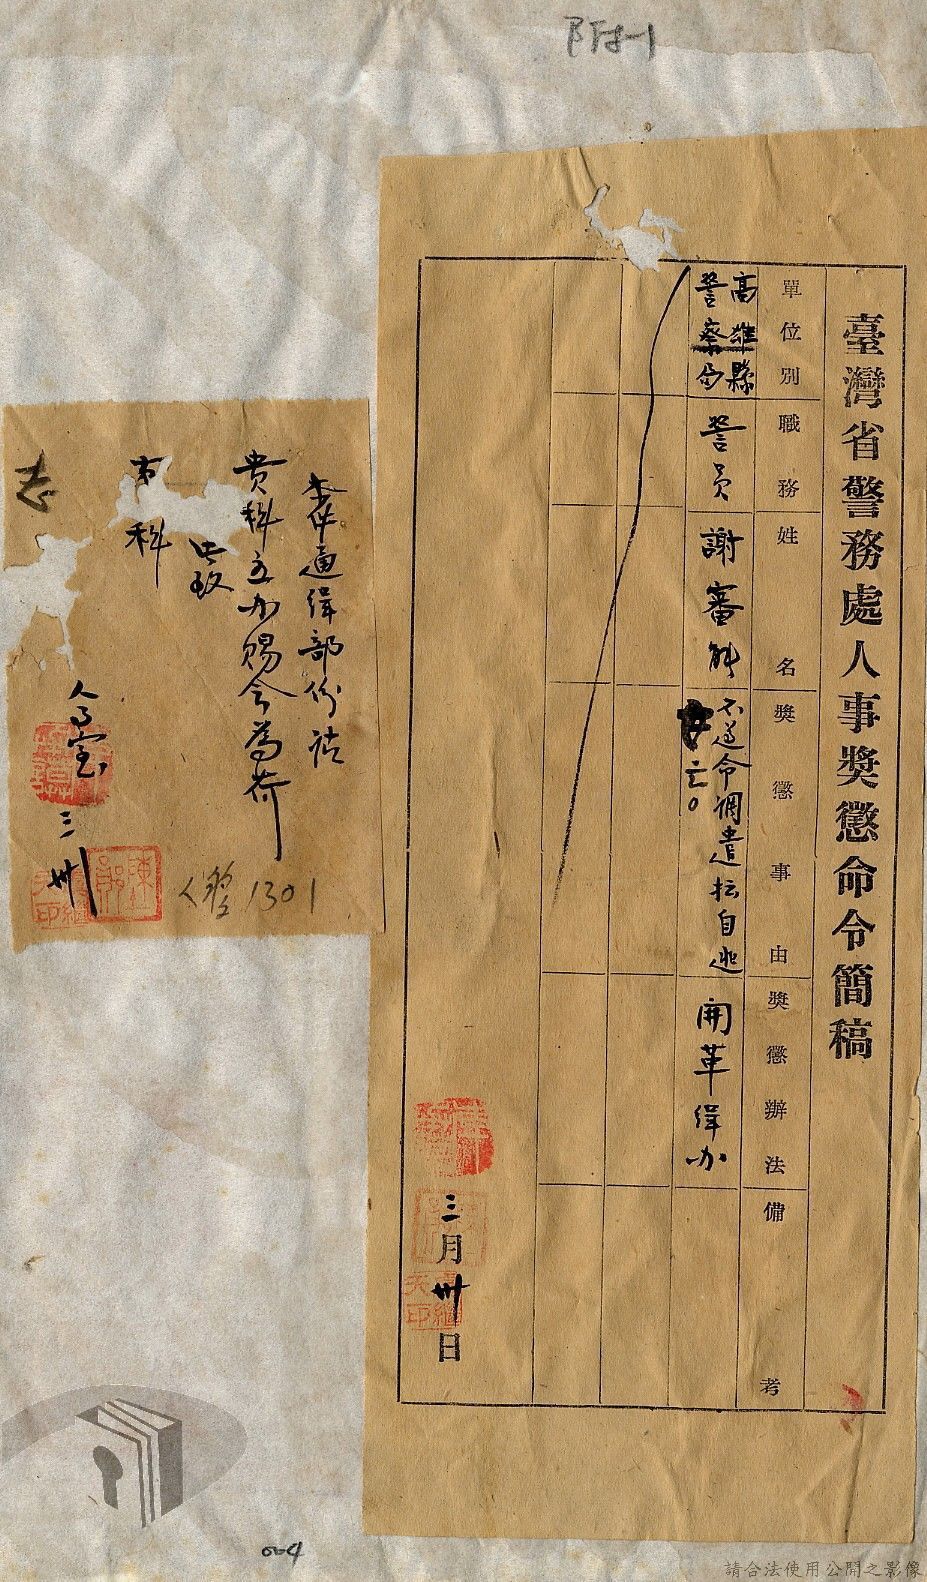 臺灣省警務處人事獎懲命令簡稿
單位別
職務
姓名
獎懲事由
獎懲辦法
備考
高雄縣
警察局
警員
謝審
不遵命調遣擅自逃
亡。
開革緝办
三月卅日
本件通緝部份請
貴科主办賜会為荷
此致
科
人事室
三卅
1301
004
請合法使用公開之影像